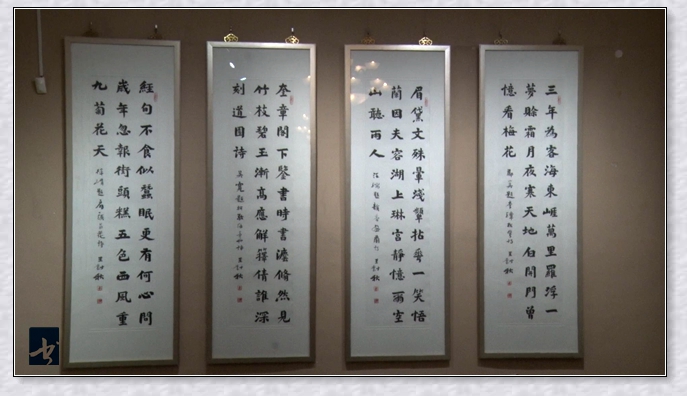 三年為客海東崕萬里羅浮一
夢賒霜月夜寒天地白閉門曾
憶看梅花
眉黛文殊暈淺顰拈華一笑悟
前因夫容湖上琳宮靜憶爾空
山聽雨人
奎章閣下鑒書時書澹翛然見
竹枝碧玉漸高應解籜倩誰深
刻道園詩
經旬不食似蠶眠更有何心問
歲年忽報街頭糕五色西風重
九菊花天